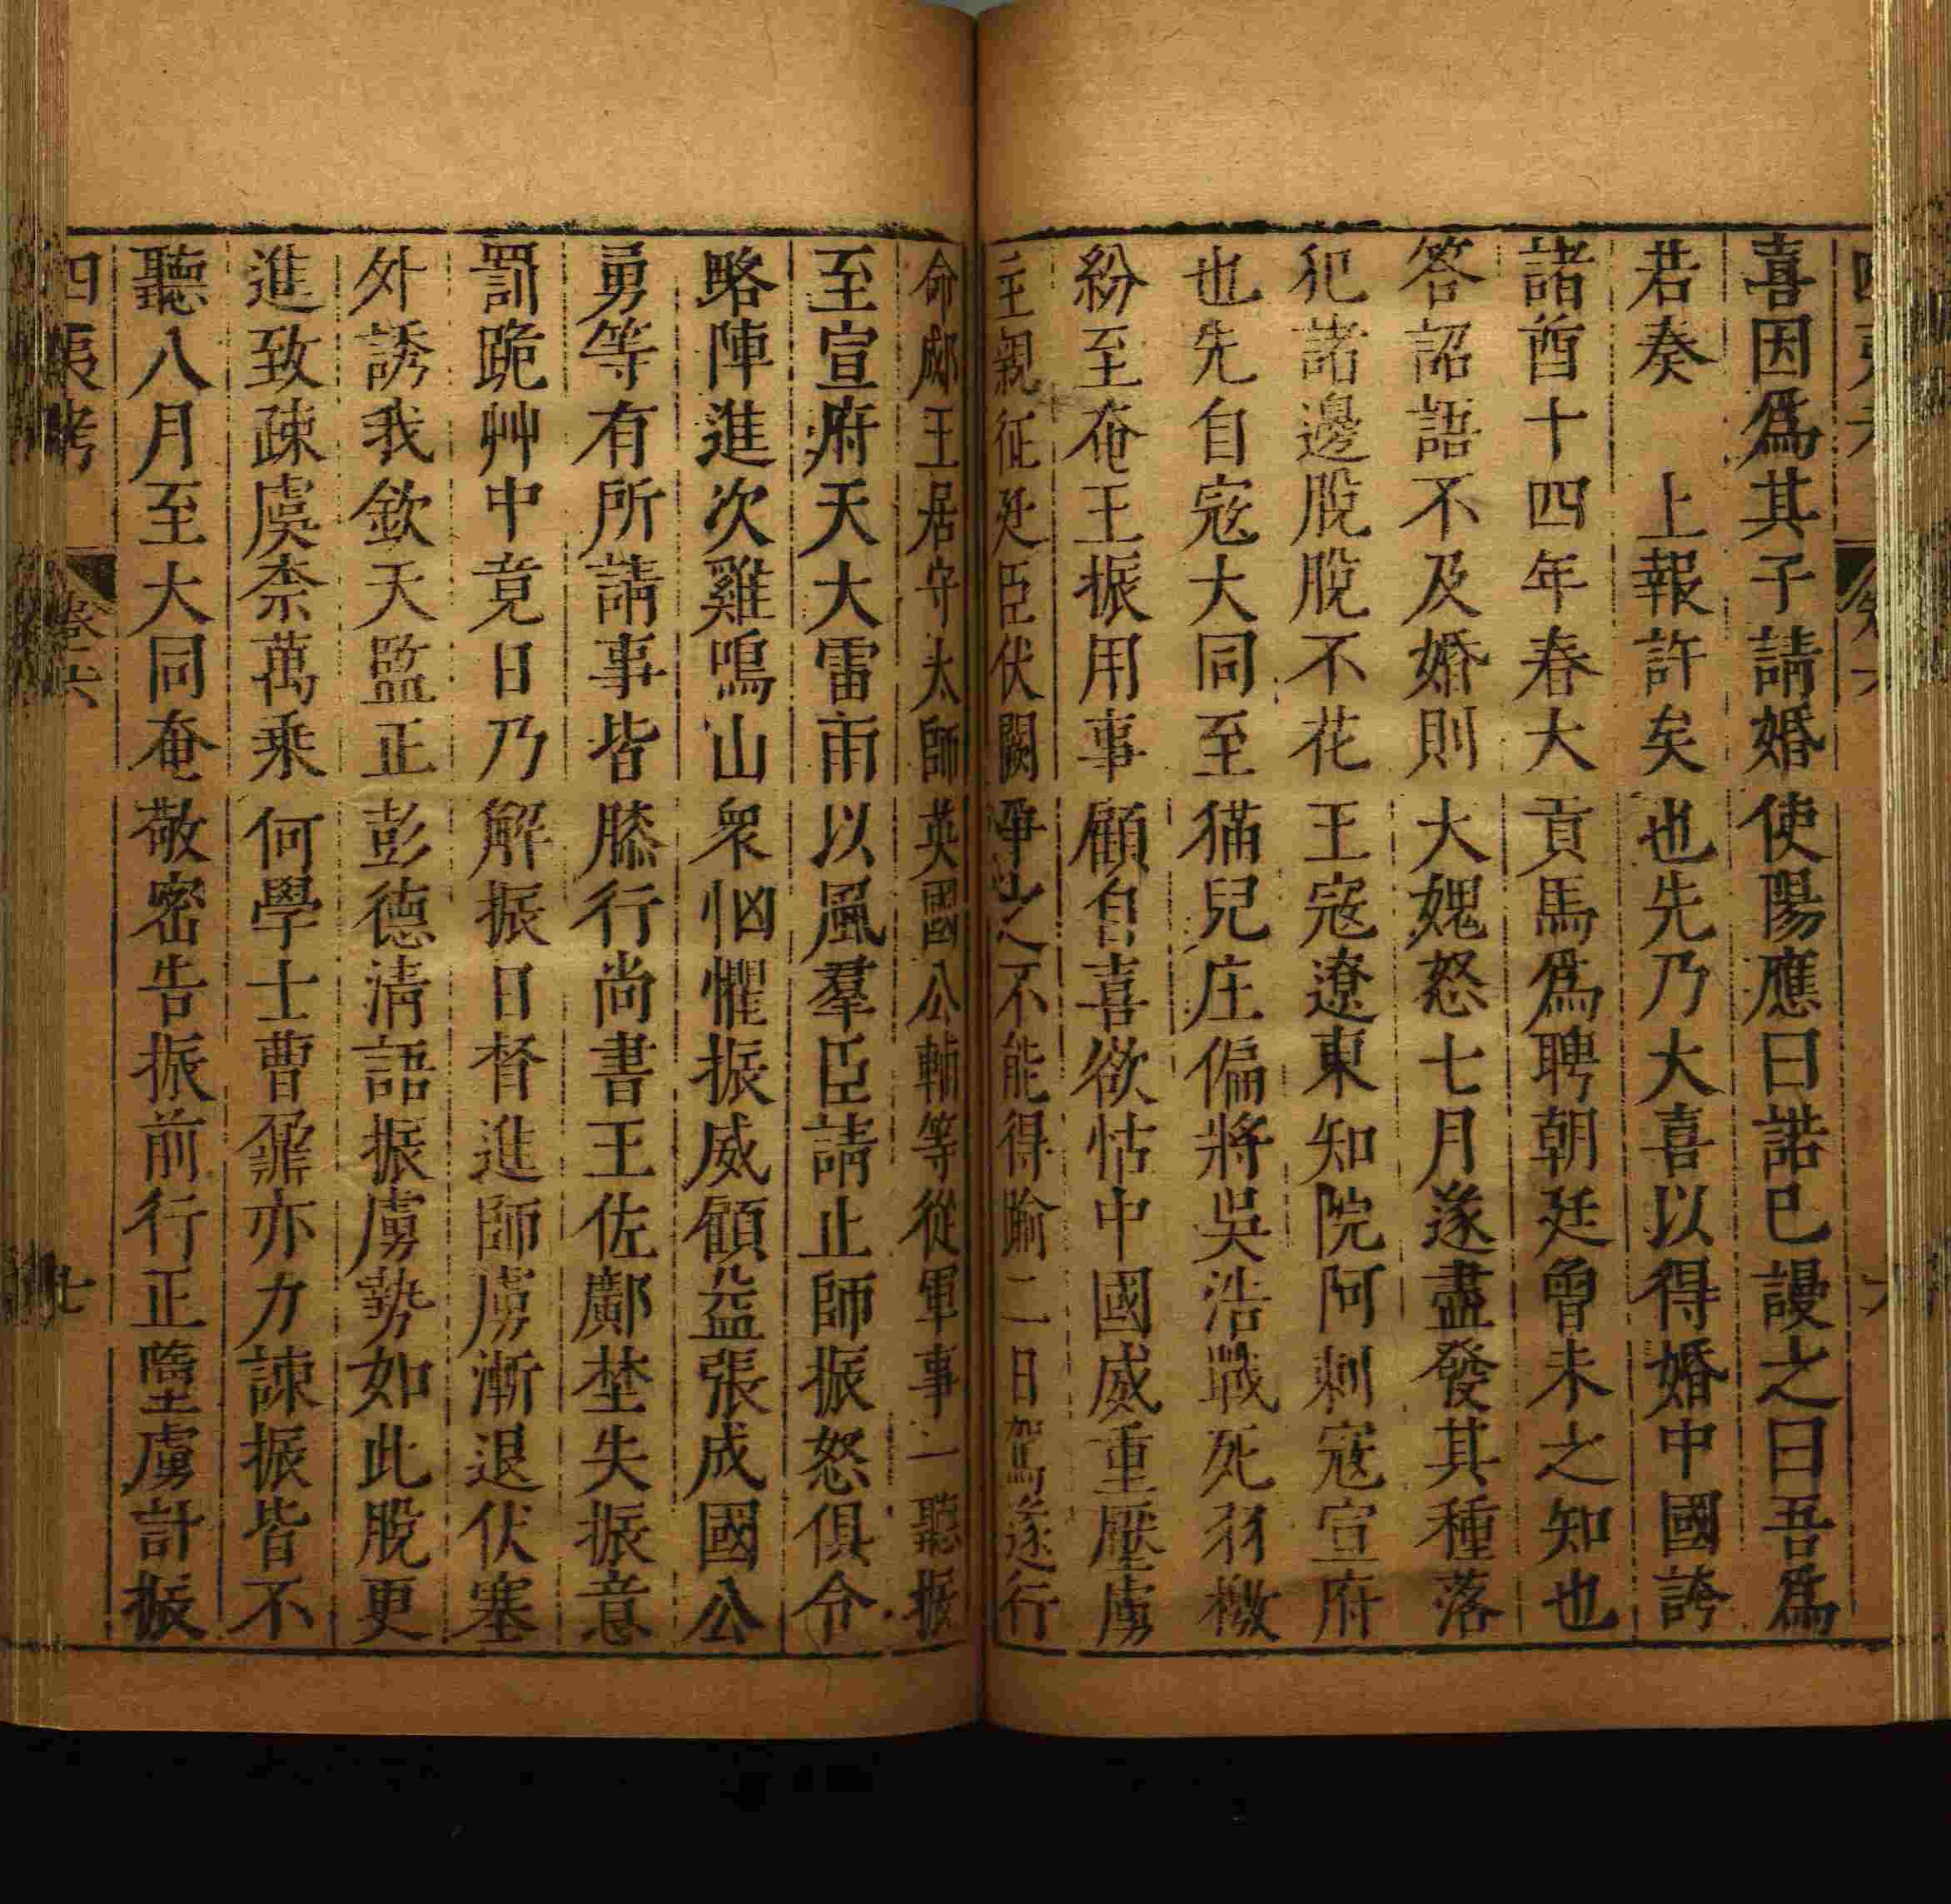 喜因爲其子請婚使陽應曰諾已謾之曰吾爲
若奏　上報許矣也先乃大喜以得婚中國誇
諸酋十四年春大貢馬爲聘朝廷曾未之知也
答詔語不及婚則大媿怒七月遂盡發其種落
犯諸邊脫脫不花王寇遼東知院阿剌寇宣府
也先自寇大同至猫兒庄偏將吳浩戰死羽檄
紛至奄王振用事顧自喜欲怙中國威重壓虜
主親征廷臣伏闕爭之不能得踰二日駕遂行
命郕王居守太師英國公輔等從軍事一聽振
至宣府天大雷雨以風羣臣請止師振怒俱令
略陣進次雞鳴山衆恟懼振威顧益張成國公
勇等有所請事皆膝行尚書王佐鄺埜失振意
罰跪艸中竟日乃解振日督進師虜漸退伏塞
外誘我欽天監正彭德淸語振虜勢如此脫更
進致疎虞柰萬乘何學士曹鼐亦力諫振皆不
聽八月至大同奄敬密告振前行正墮虜計振
四夷考　卷六　七